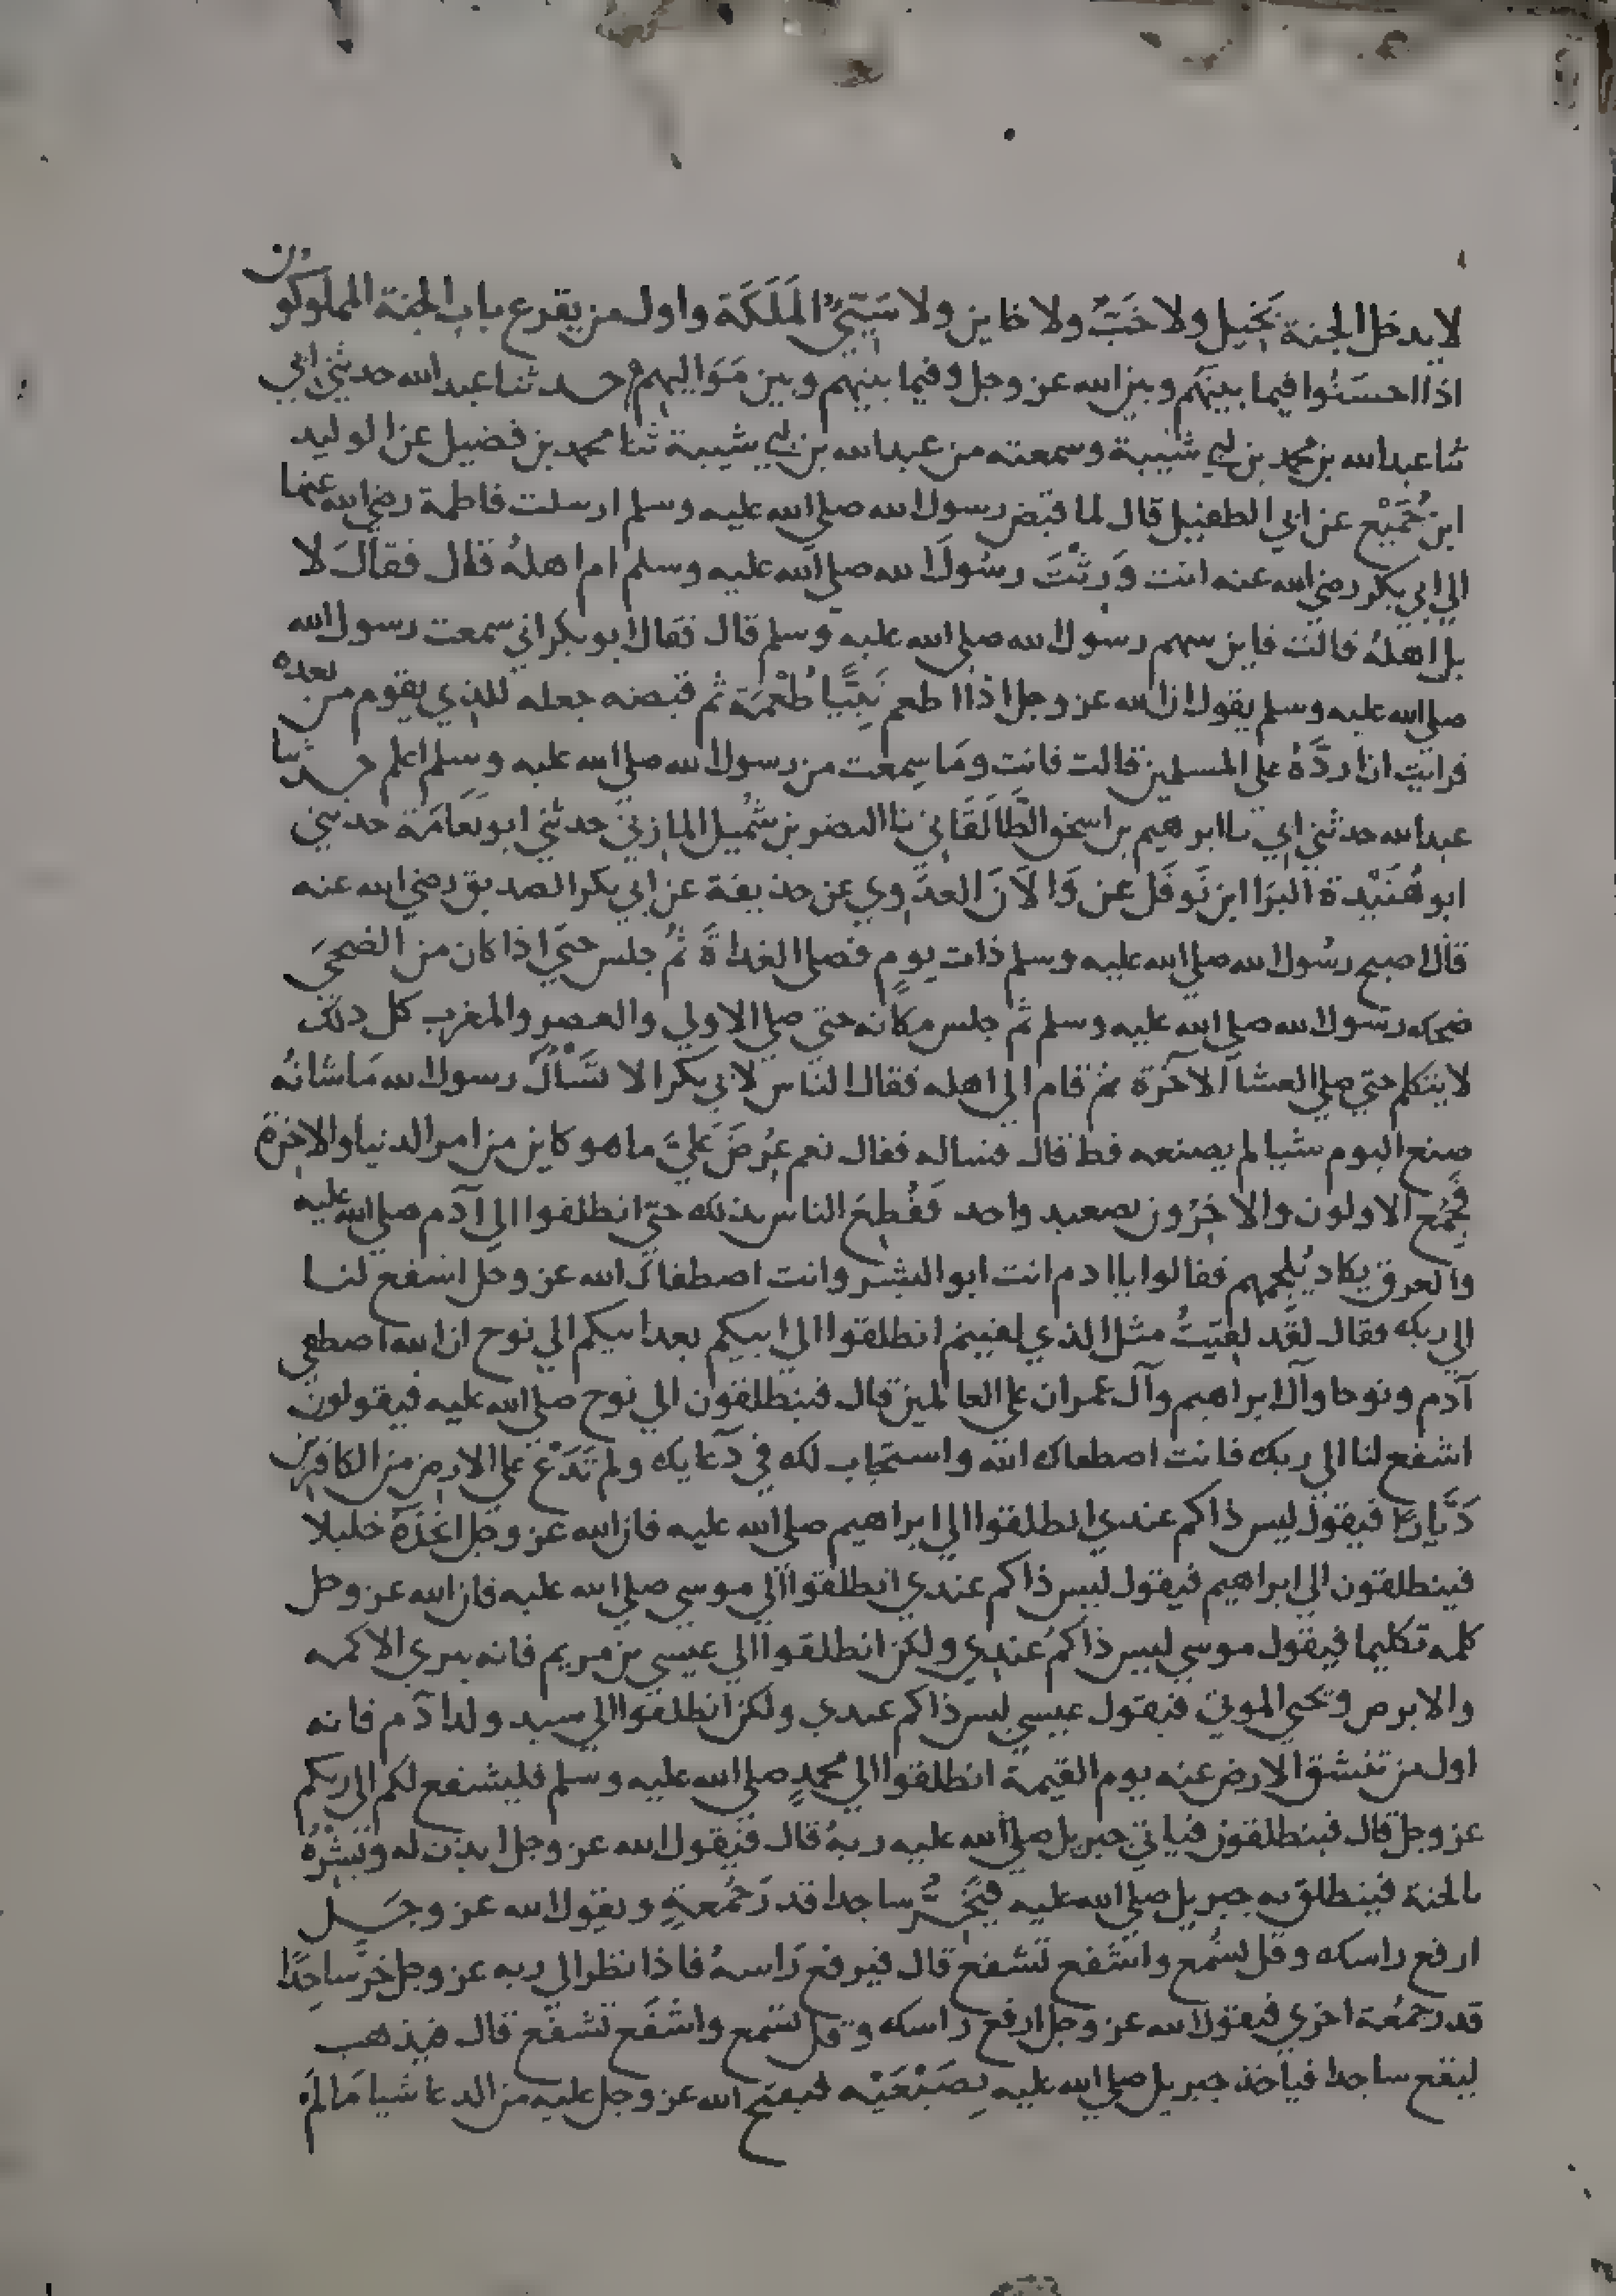 لا يدخل الجنة بَخيل ولا خَبٌّ ولا خاين ولا سَيّيُ المَلَكَة واول من يقرع باب الجنة المملوكون
اذا احسَنُوا فيما بينهم وبين الله عز وجل وفيما بينهم وبين مَوَاليهم حدثنا عبد الله حدثني ابي
ثنا عبد الله بن محمد بن ابي شيبة وسمعته من عبد الله بن ابي شيبة ثنا محمد بن فضيل عن الوليد
ابن جُمَيْع عن ابي الطفيل قال لما قبض رسول الله صلى الله عليه وسلم ارسلت فاطمة رضي الله عنها
الي ابي بكر رضي الله عنه انت وَرِثْتَ رسُولَ الله صلي الله عليه وسلم ام اهلهُ قال فقالَ لا
بل اهلهُ قالت فاين سهم رسول الله صلي الله عليه وسلم قال فقال ابو بكر اني سمعت رسول الله
صلي الله عليه وسلم يقول ان الله عز وجل اذا اطعم نَبِيًّا طُعْمَة ثم قبضه جعله للذي يقوم من بعده
فرايت ان اردَّهُ علي المسلمين قالت فانت ومَا سمعت من رسول الله صلي الله عليه وسلم اعلم حدثنا
عبد الله حدثني ابي نا ابرهيم بن اسحق الطَّالَقَاني نا النضر بن شُمَيل المازني حدثني ابو نَعَامَة حدثني
ابو هُنَيْدة البَرَا ابن نَوفَل عن وَالانَ العدَوي عن حذيفة عن ابي بكر الصديق رضي الله عنه
قال اصبح رسُول الله صلي الله عليه وسلم ذات يومٍ فصلي الغداةَ ثُم جلس حتي اذا كان من الضحيَ
ضحك رسول الله صلي الله عليه وسلم ثم جلس مكانه حتي صلي الاولي والعصر والمغرب كل ذلك
لا يتكلم حتي صلي العشآ الآخرَة ثم قام الي اهله فقال الناس لابي بكر الا تَسْأَلُ رسول الله مَا شانُه
صنع اليوم شيا لم يصنعه قط قال فساله فقال نعم عُرِضَ عَليَّ ما هو كاين من امر الدنيا والاخرة
فجُمِع الاولون والاخِرُون بصعيد واحد فَفُظِعَ الناس بذلك حتي انطلقوا الي آدم صلي الله عليه
والعرق يكاد يُلجمهم فقالوا يا ادم انت ابو البشر وانت اصطفاك الله عز وجل اشفع لنا
الي ربك فقال لقَد لقيتُ مثل الذي لقيتم انطلقوا الي ابيكم بعد ابيكم الي نوح ان الله اصطفي
آدم ونوحا وآل ابراهيم وآل عمران علي العالمين قال فينطلقون الي نوح صلي الله عليه فيقولون
اشفع لنا الي ربك فانت اصطفاك الله واستجاب لك في دعايك ولم تَدَعْ علي الارض من الكافرين
دَيَّارًا فيقول ليس ذاكم عندي انطلقوا الي ابراهيم صلي الله عليه فان الله عز وجل اتخذَهُ خليلا
فينطلقون الي ابراهيم فيقول ليس ذاكم عندي انطلقوا الي موسي صلي الله عليه فان الله عز وجل
كلمه تكليما فيقول موسي ليس ذاكمُ عندي ولكن انطلقوا الي عيسي بن مريم فانه يبري الاكمه
والابرص ويحيي الموتي فيقول عيسي ليس ذاكم عندي ولكن انطلقوا الي سيد ولد آدم فانه
اول من تنشق الارض عنه يوم القيمة انطلقوا الي محمدٍ صلي الله عليه وسلم فليشفع لكم الي ربكم
عز وجل قال فينطلقون فياتي جبريل صلي الله عليه ربهُ قال فيَقول الله عز وجل ايذن له وبَشِّرْهُ
بالجنة فينطلق به جبريل صلي الله عليه فيَخرُّ ساجدا قدرَ جُمُعةٍ ويقول الله عز وجَل
ارفع راسك وقل تُسْمع واشْفَع تُشَفع قال فيرفع رَاسهُ فاذا نظر الي ربه عز وجل خرَّ ساجِدًا
قدر جُمُعة اخري فيقول الله عز وجل ارفع راسك وقل تسمع واشْفَع تشفَّع قال فيذهب
ليقع ساجدا فياخذ جبريل صلي الله عليه بضَبْعَيْه فيفتح الله عز وجل عليه من الدعا شيا مَا لم